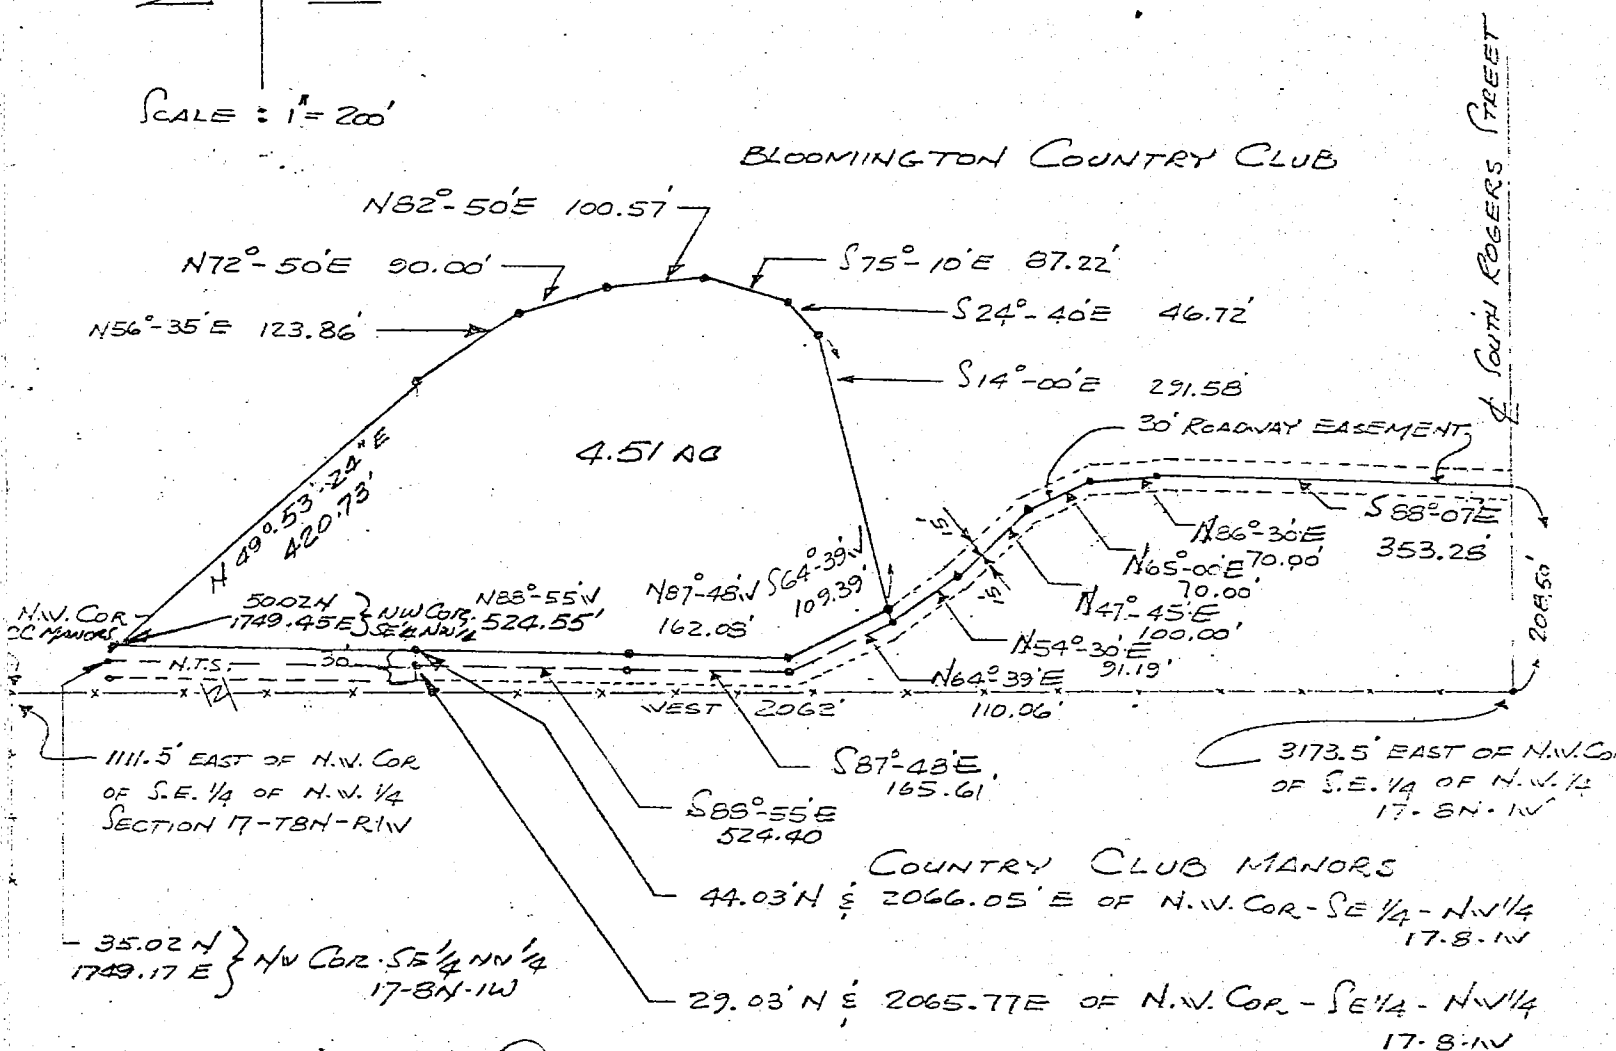 SCALE : 1" = 200'
BLOOMINGTON COUNTRY CLUB
℄ SOUTH ROGERS STREET
N82°-50'E 100.57'
N72°-50'E 90.00'
N56°-35'E 123.86'
S75°-10'E 87.22'
S24°-40'E 46.72'
S14°-00'E 291.58'
30' ROADWAY EASEMENT
4.51 AC
N 49°-53'-24"E
420.73'
S64°-39'W
109.39'
15'
15'
S88°-07'E
353.28'
N86°-30'E
70.00'
N65°-00'E
70.00'
N47°-45'E
100.00'
N54°-30'E
91.19'
N64°39'E
110.06'
208.50'
N.W. COR
CC MANORS
50.02 N
1749.45 E } NW COR.
SE¼ NW¼
N88°-55'W
524.55'
N87°-48'W
162.08'
N.T.S.
30'
WEST 2062'
1111.5' EAST OF N.W. COR
OF S.E. 1/4 OF N.W. 1/4
SECTION 17-T8N-R1W
S87°-48'E
165.61'
S88°-55'E
524.40
3173.5' EAST OF N.W. CO
OF S.E. 1/4 OF N.W. 1/4
17-8N-1W
COUNTRY CLUB MANORS
44.03'N & 2066.05'E OF N.W. COR - SE 1/4 - NW 1/4
17-8-1W
35.02 N
1749.17 E } NW COR. SE¼ NW¼
17-8N-1W
29.03'N & 2065.77E OF N.W. COR - SE 1/4 - NW 1/4
17-8-1W